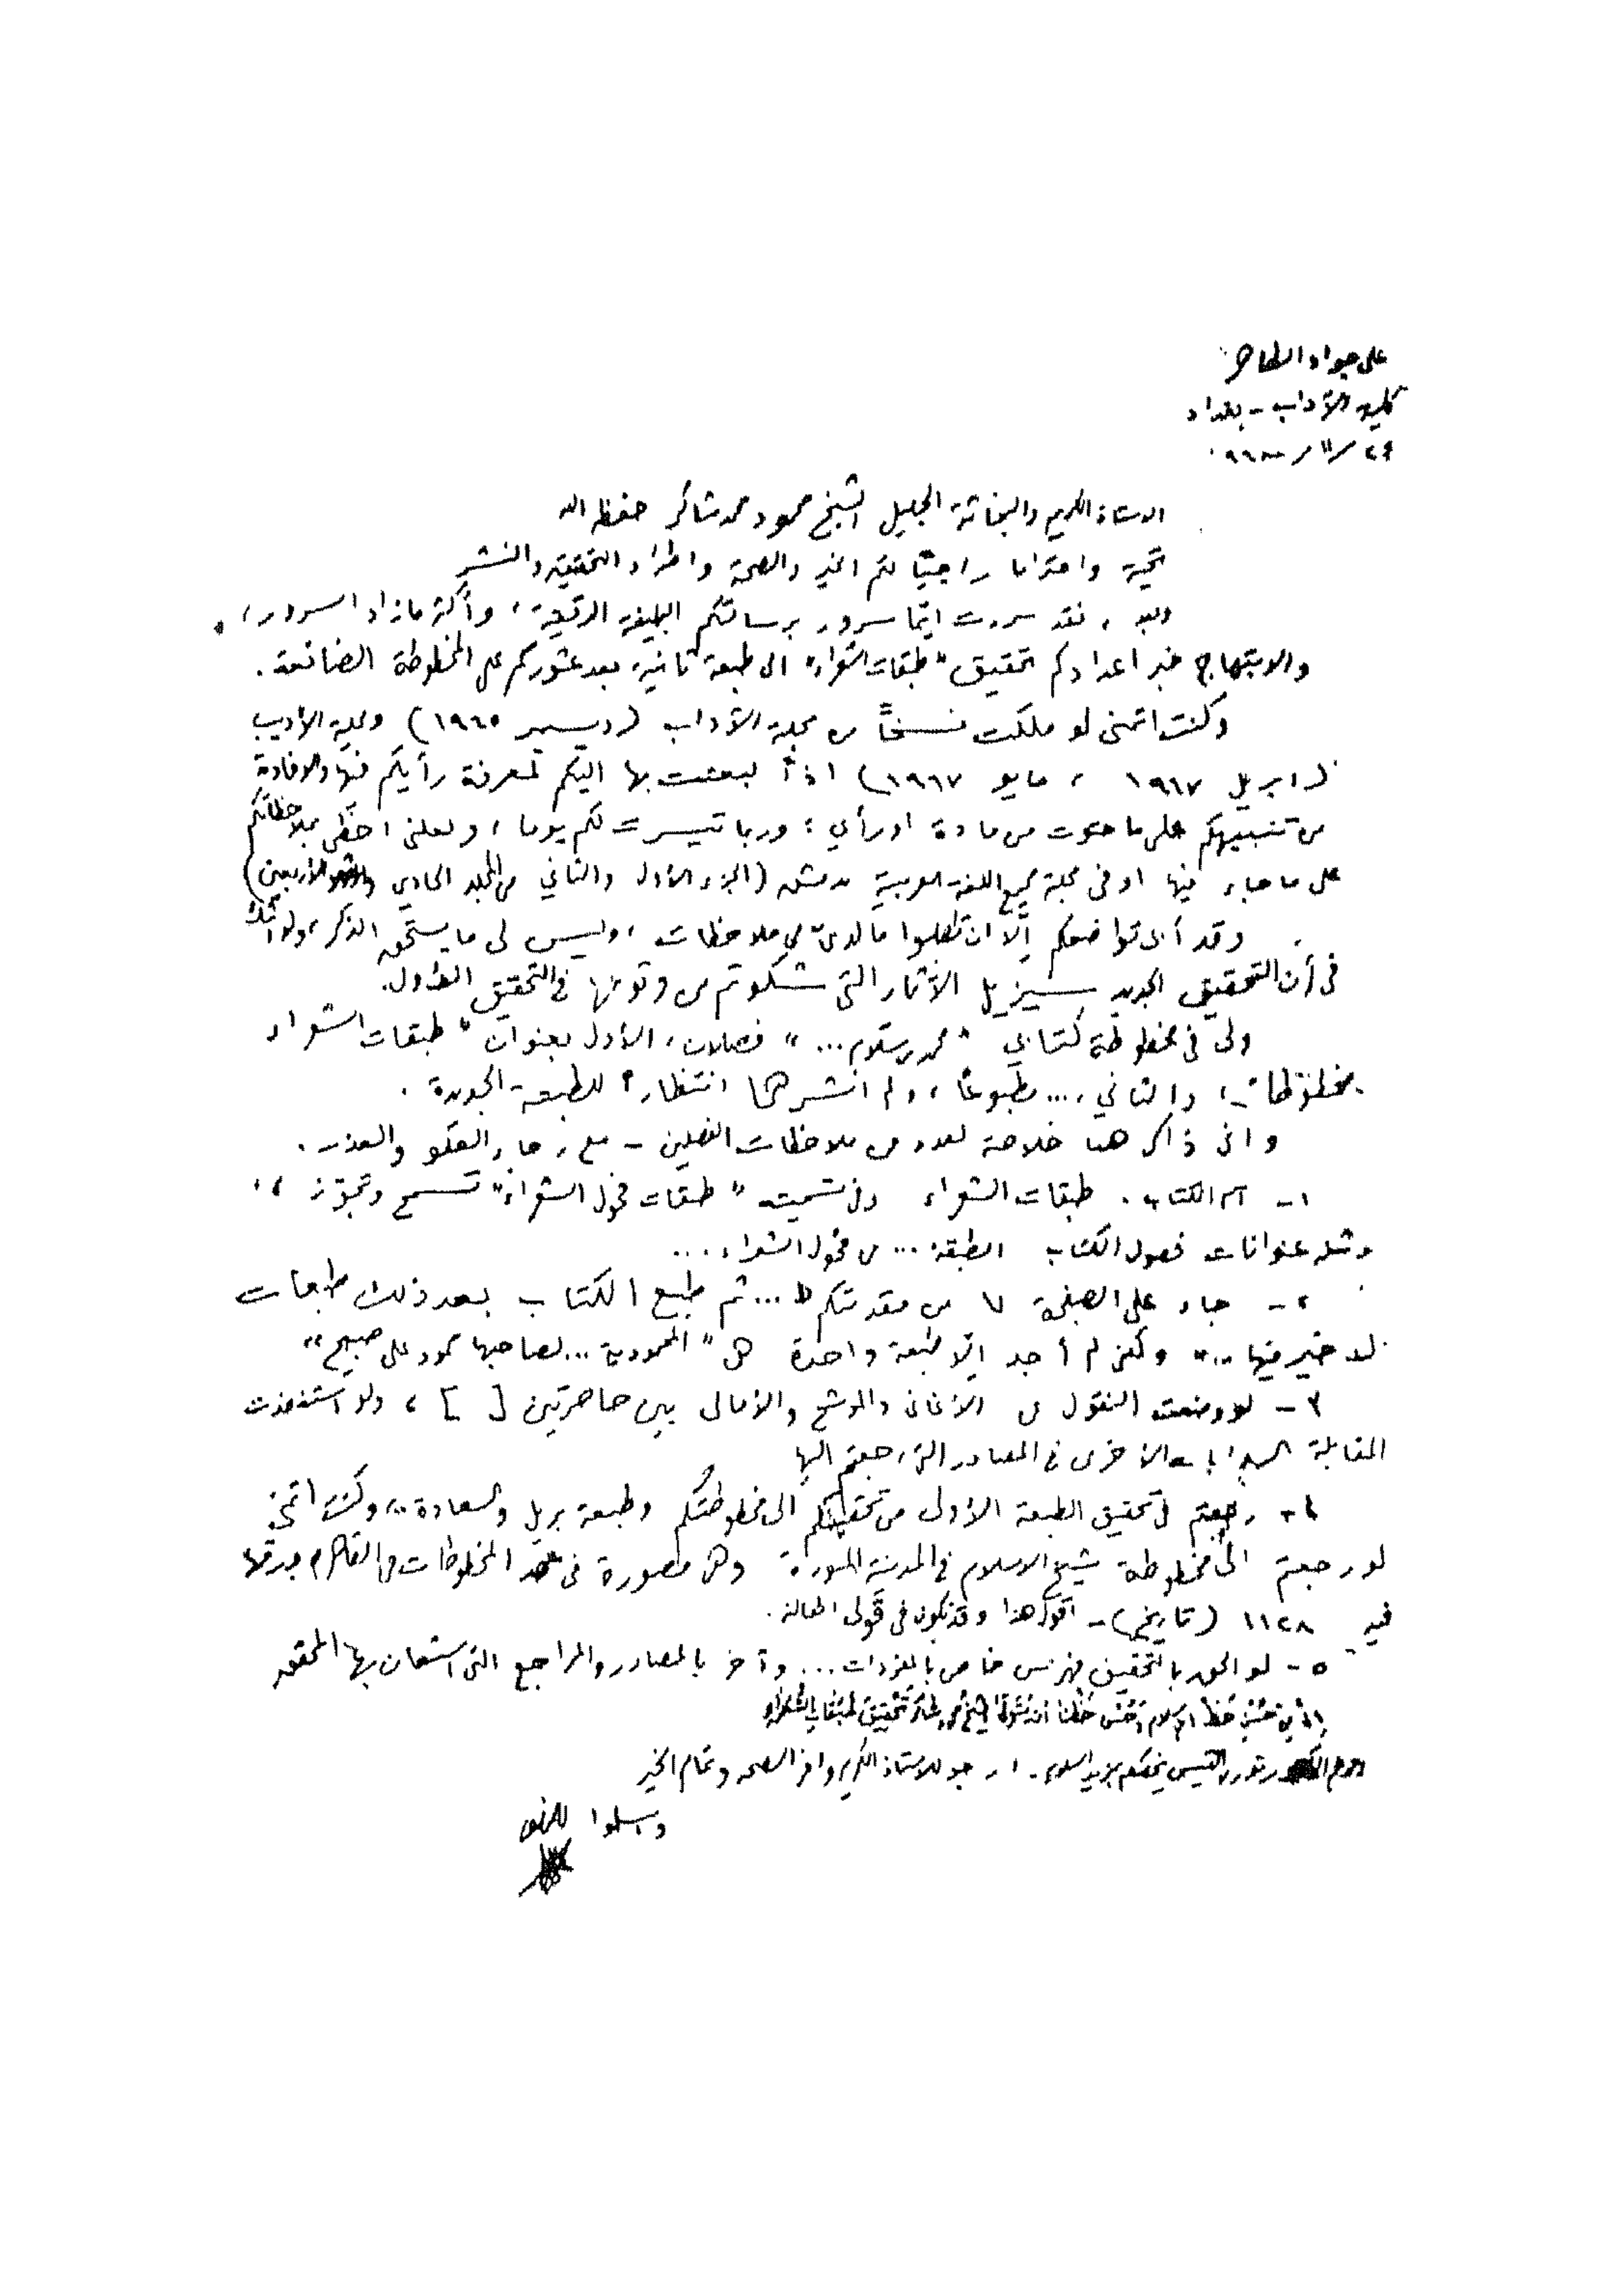 علي جواد الطاهر
كلية الآداب - بغداد
٢٩ / ١١ / ٩٦٨
الاستاذ الكريم والبحاثة الجليل الشيخ محمود محمد شاكر حفظه الله
تحية واحتراما راجيًا لكم الخير والصحة واطراد التحقيق والنشر
وبعد، فقد سررت ايّما سرور برسالتكم البليغة الرقيقة، وأكثر ما زاد السرور،
والابتهاج خبر اعدادكم تحقيق "طبقات الشعراء" الى طبعة ثانية بعد عثوركم على المخطوطة الضائعة.
وكنت اتمنى لو ملكت نسخاً من مجلة الآداب (ديسمبر ١٩٦٥) ومجلة الأديب
(ابريل ١٩٦٧ ، مايو ١٩٦٧) اذاً لبعثت بها اليكم لمعرفة رأيكم فيها والافادة
من تنبيهكم على ما حوت من مادة او رأي؛ وربما تيسرت لكم يوما، ولعلني احظى بملاحظاتكم
على ما جاء فيها او في مجلة مجمع اللغة العربية بدمشق (الجزء الأول والثاني من المجلد الحادي والاربعين)
وقد أبى تواضعكم إلّا ان تطلبوا ما لديّ من ملاحظات، وليس لي ما يستحق الذكر، ولا شك
في أن التحقيق الجديد سيزيل الآثار التي شكوتم من وقوعها في التحقيق الاول.
ولي في مخطوطة كتابي "محمد بن سلام ..." فصلان، الأول بعنوان "طبقات الشعراء
مخطوطات، والثاني ،... مطبوعًا، ولم انشرهما انتظاراً للطبعة الجديدة.
واني ذاكر هنا خلاصة لعدد من ملاحظات الفصلين - مع رجاء العفو والعذر.
١- اسم الكتاب. طبقات الشعراء وفي تسميته "طبقات فحول الشعراء" تسمح وتجوّز،
ومثله عنوانات فصول الكتاب الطبقة ... من فحول الشعراء ...
٢- جاء على الصفحة ٧ من مقدمتكم "... ثم طبع الكتاب بعد ذلك طبعات
لا خير فيها ..." ولكني لم أجد إلّا طبعة واحدة هي "المحمودية ... لصاحبها محمود علي صبيح"
٣- لو وضعت النقول من الأغاني والموشح والأمالي بين حاصرتين [ ] ، ولو استنفذت
المقابلة الروايات الأخرى في المصادر التي رجعتم اليها
٤- رجعتم في تحقيق الطبعة الأولى من تحقيقكم الى مخطوطتكم وطبعة بريل والسعادة ..، وكنت اتمنى
لو رجعتم الى مخطوطة شيخ الاسلام في المدينة المنورة وهي مصورة في معهد المخطوطات في القاهرة ورقمها
فيه ١١٢٨ (تاريخ) - اقول هذا وقد يكون في قولي المغالاة.
٥- لو الحق بالتحقيق فهرس خاص بالمفردات ... وآخر بالمصادر والمراجع التي استعان بها المحقق
من حسن حظ ابن سلام وحسن حظنا أن يتولى الشيخ محمود شاكر تحقيق طبقات الشعراء
نوري القيسي يخصكم بمزيد السلام. ارجو للاستاذ الكريم وافر الصحة وتمام الخير
واسلموا للمخلص